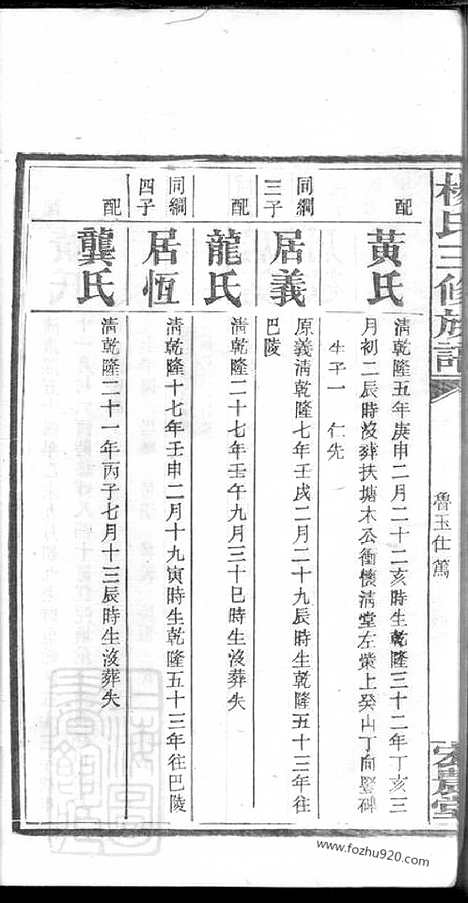 楊氏三修族譜
魯玉仕篤
配
黃氏
清乾隆五年庚申二月二十二亥時生乾隆三十二年丁亥三
月初二辰時沒葬扶塘木公衝懷清堂左築上癸山丁向豎碑
生子一 仁先
同綱
三子
居義
原義清乾隆七年壬戌二月二十九辰時生乾隆五十三年往
巴陵
配
龍氏
清乾隆二十七年壬午九月三十巳時生沒葬失
同綱
四子
居恆
清乾隆十七年壬申二月十九寅時生乾隆五十三年往巴陵
配
龔氏
清乾隆二十一年丙子七月十三辰時生沒葬失
www.fozhu920.com